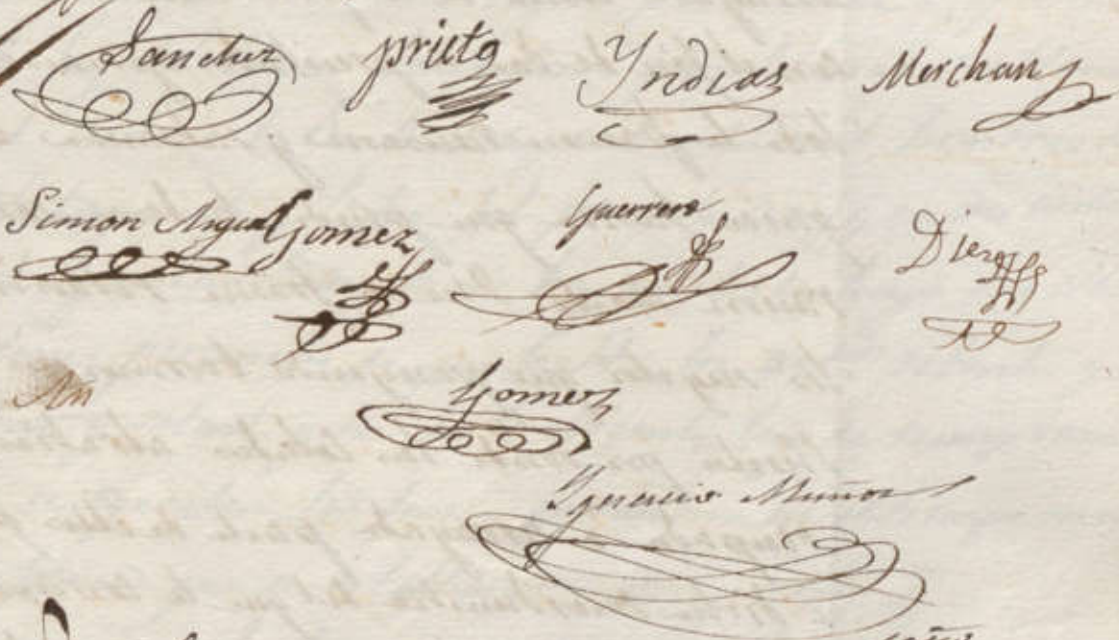 Sanchez prieto Yndias Merchan
Simon Miguel Gomez Guerrero Diez
Gomez
Ygnacio Muñoz